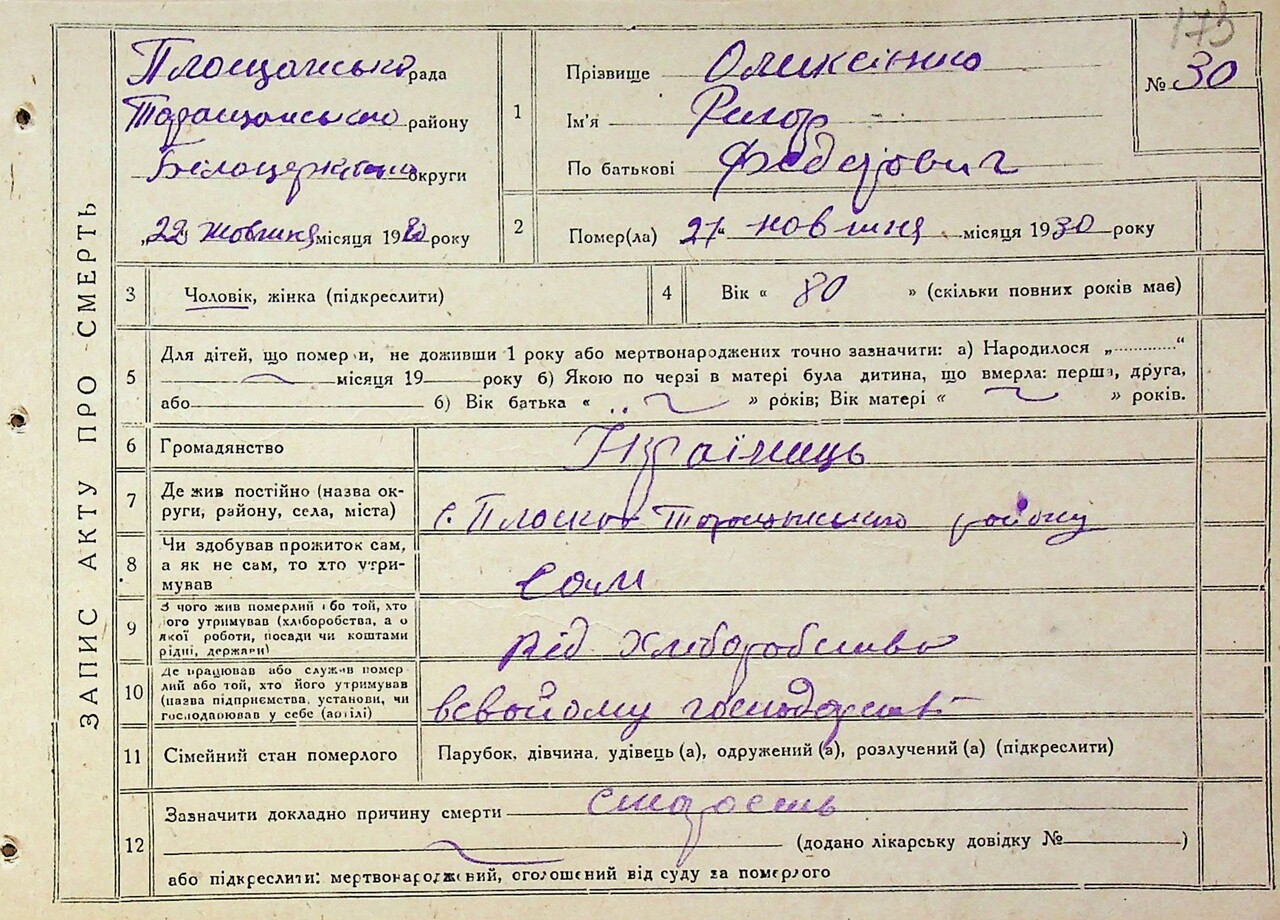 173
ЗАПИС АКТУ ПРО СМЕРТЬ
Площанська рада
Таращанського району
Білоцерківської округи
„22“ жовтня місяця 1930 року
1
Прізвище Оликсієнко
Ім'я Ригор
По батькові Федорович
№ 30
2
Помер(ла) 21 жовтня місяця 1930 року
3 Чоловік, жінка (підкреслити)
4 Вік « 80 » (скільки повних років має)
5
Для дітей, що померли, не доживши 1 року або мертвонароджених точно зазначити: а) Народилося „............“
місяця 19 року б) Якою по черзі в матері була дитина, що вмерла: перша, друга,
або б) Вік батька « » років; Вік матері « » років.
6 Громадянство Українець
7
Де жив постійно (назва ок-
руги, району, села, міста)
с. Плоска Таращанського району
8
Чи здобував прожиток сам,
а як не сам, то хто утри-
мував
Сам
9
З чого жив померлий або той, хто
його утримував (хліборобства, а о
якої роботи, посади чи коштами
рідні, держави)
від Хліборобства
10
Де працював або служив помер-
лий або той, хто його утримував
(назва підприємства, установи, чи
господарював у себе (артілі)
всвойому господарстві
11 Сімейний стан померлого Парубок, дівчина, удівець (а), одружений (а), розлучений (а) (підкреслити)
12
Зазначити докладно причину смерти старость
(додано лікарську довідку № )
або підкреслити: мертвонароджений, оголошений від суду за померлого